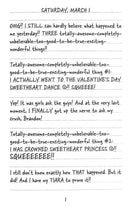 SATURDAY, MARCH 1
OMG! I STILL can hardly believe what happened to
me yesterday!! THREE totally-awesome-completely-
unbelievable-too-good-to-be-true-exciting-
wonderful things!!
Totally-awesome-completely-unbelievable-too-
good-to-be-true-exciting-wonderful thing #1:
I ACTUALLY WENT TO THE VALENTINE'S DAY
SWEETHEART DANCE ☺! SQUEEEE!
Yep! It was girls ask the guys! And at the very last
moment, I FINALLY got up the nerve to ask my
crush, Brandon!
Totally-awesome-completely-unbelievable-too-
good-to-be-true-exciting-wonderful thing #2:
I WAS CROWNED SWEETHEART PRINCESS ☺!
SQUEEEEEEE!!
I still don't know exactly how THAT happened. But it
did! And I have my TIARA to prove it!
1